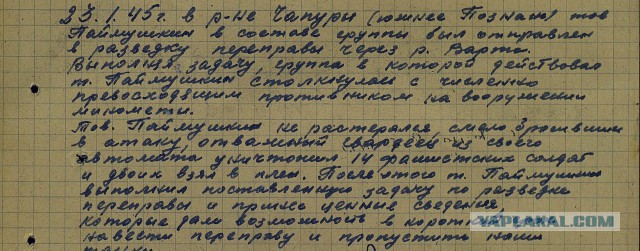 23.1.45г. в р-не Чапуры (южнее Познань) тов
Паймушкин в составе группы был отправлен
в разведку переправы через р. Варта.
Выполняя задачу, группа в которой действовал
т. Паймушкин столкнулась с численно
превосходящим противником на вооружении
минометы.
Тов. Паймушкин не растерялся, смело бросившись
в атаку, отважный гвардеец из своего
автомата уничтожил 14 фашистских солдат
и двоих взял в плен. После этого т. Паймушкин
выполнил поставленную задачу по разведке
переправы и принес ценные сведения,
которые дали возможность в корот
навести переправу и пропустить наши
YAPLAKAL.COM